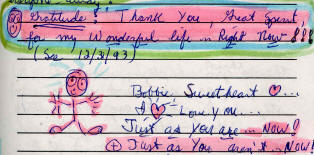 Gratitude! Thank You, Great Spirit,
for my Wonderful life... Right Now!!!
(See 12/3/93)
Bobbie, Sweetheart ...
I Love You...
Just as you are... Now!
Just as You aren't... Now!